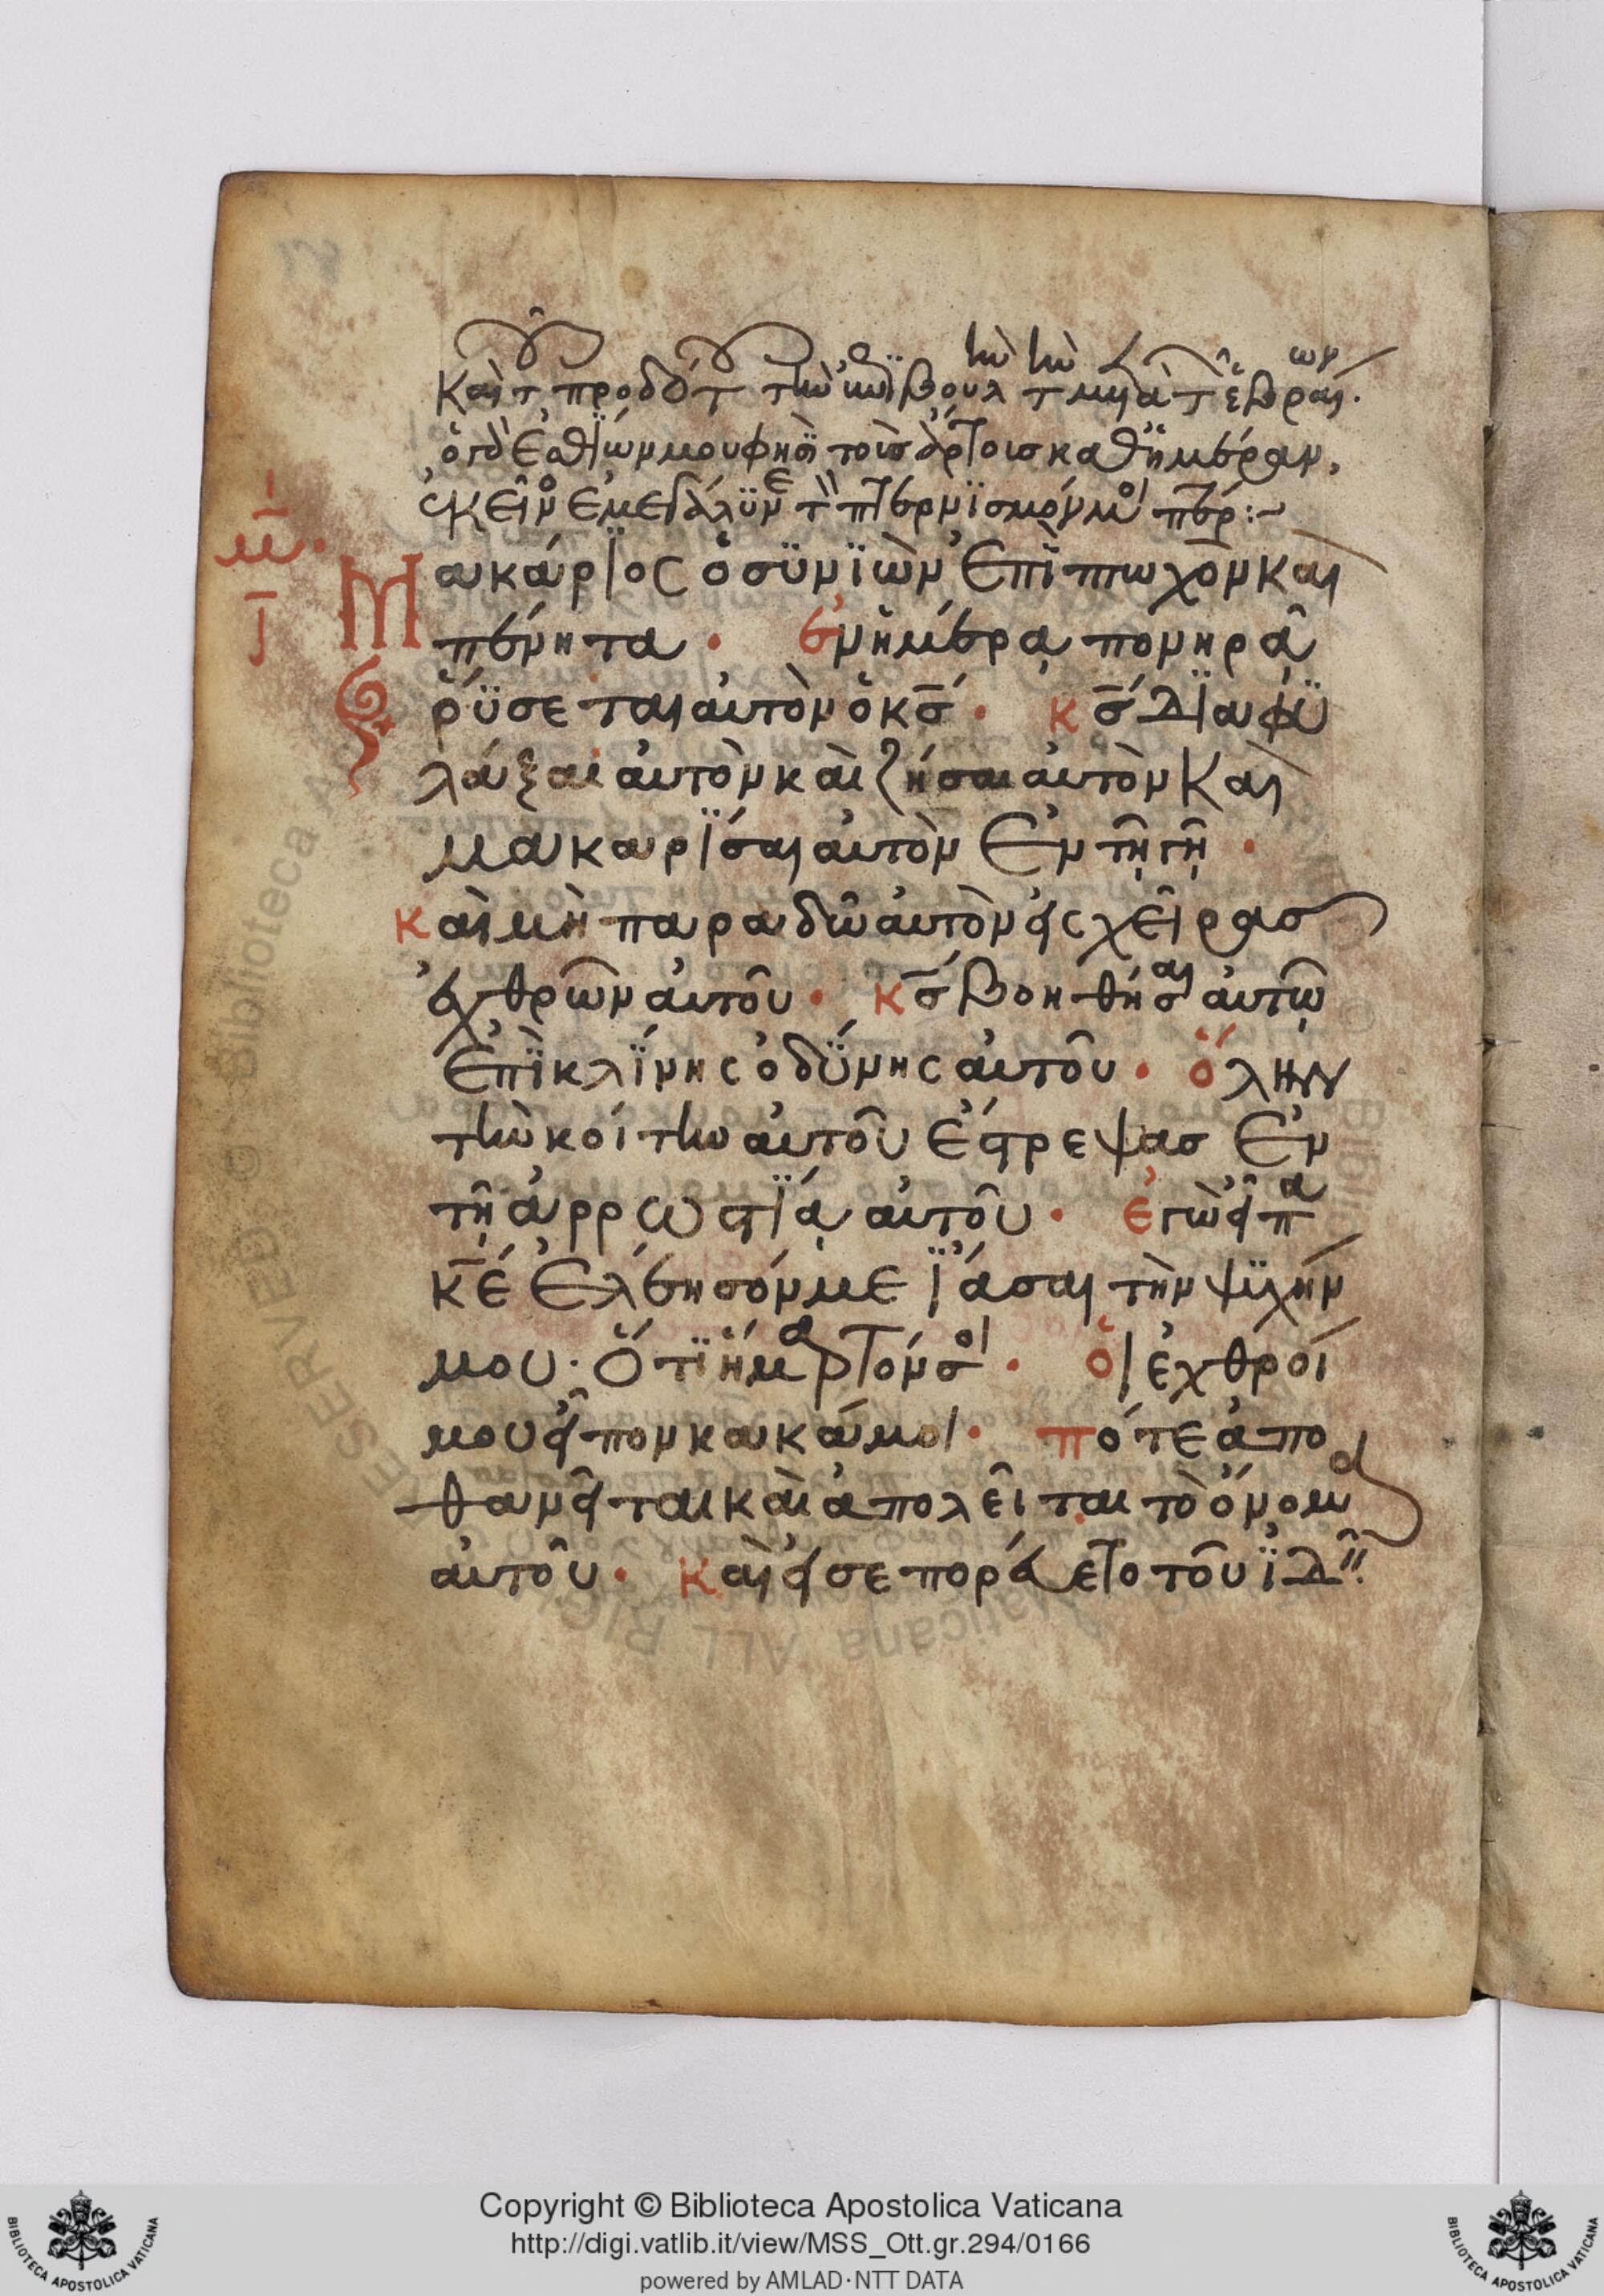 ὁ γὰρ ἐσθίων μου φησι τοὺς ἄρτους καθημέραν,
Μακάριος ὁ συνϊὼν ἐπὶ πτωχὸν καὶ
πένητα · ἐν ἡμέρᾳ πονηρᾷ
ῥύσεται αὐτὸν ὁ κς · κς διαφυ
λάξαι αὐτὸν καὶ ζήσαι αὐτὸν καὶ
μακαρίσαι αὐτὸν ἐν τῇ γῇ ·
καὶ μὴ παραδῶ αὐτὸν εἰς χεῖρας
ἐχθρῶν αὐτοῦ · κς βοηθήσαι αὐτῷ
ἐπὶ κλίνης ὀδύνης αὐτοῦ · ὅλην
τὴν κοίτην αὐτοῦ ἔστρεψας ἐν
τῇ ἀρρωστίᾳ αὐτοῦ · ἐγὼ εἶπα
κε ἐλέησόν με ἴασαι τὴν ψυχήν
μου · ὅτι ἥμαρτόν σοι · οἱ ἐχθροί
μου εἶπον κακά μοι · πότε ἀπο
θανεῖται καὶ ἀπολεῖται τὸ ὄνομα
αὐτοῦ · καὶ εἰσεπορεύετο τοῦ ἰδεῖν
Copyright © Biblioteca Apostolica Vaticana
http://digi.vatlib.it/view/MSS_Ott.gr.294/0166
powered by AMLAD·NTT DATA
BIBLIOTECA APOSTOLICA VATICANA
BIBLIOTECA APOSTOLICA VATICANA